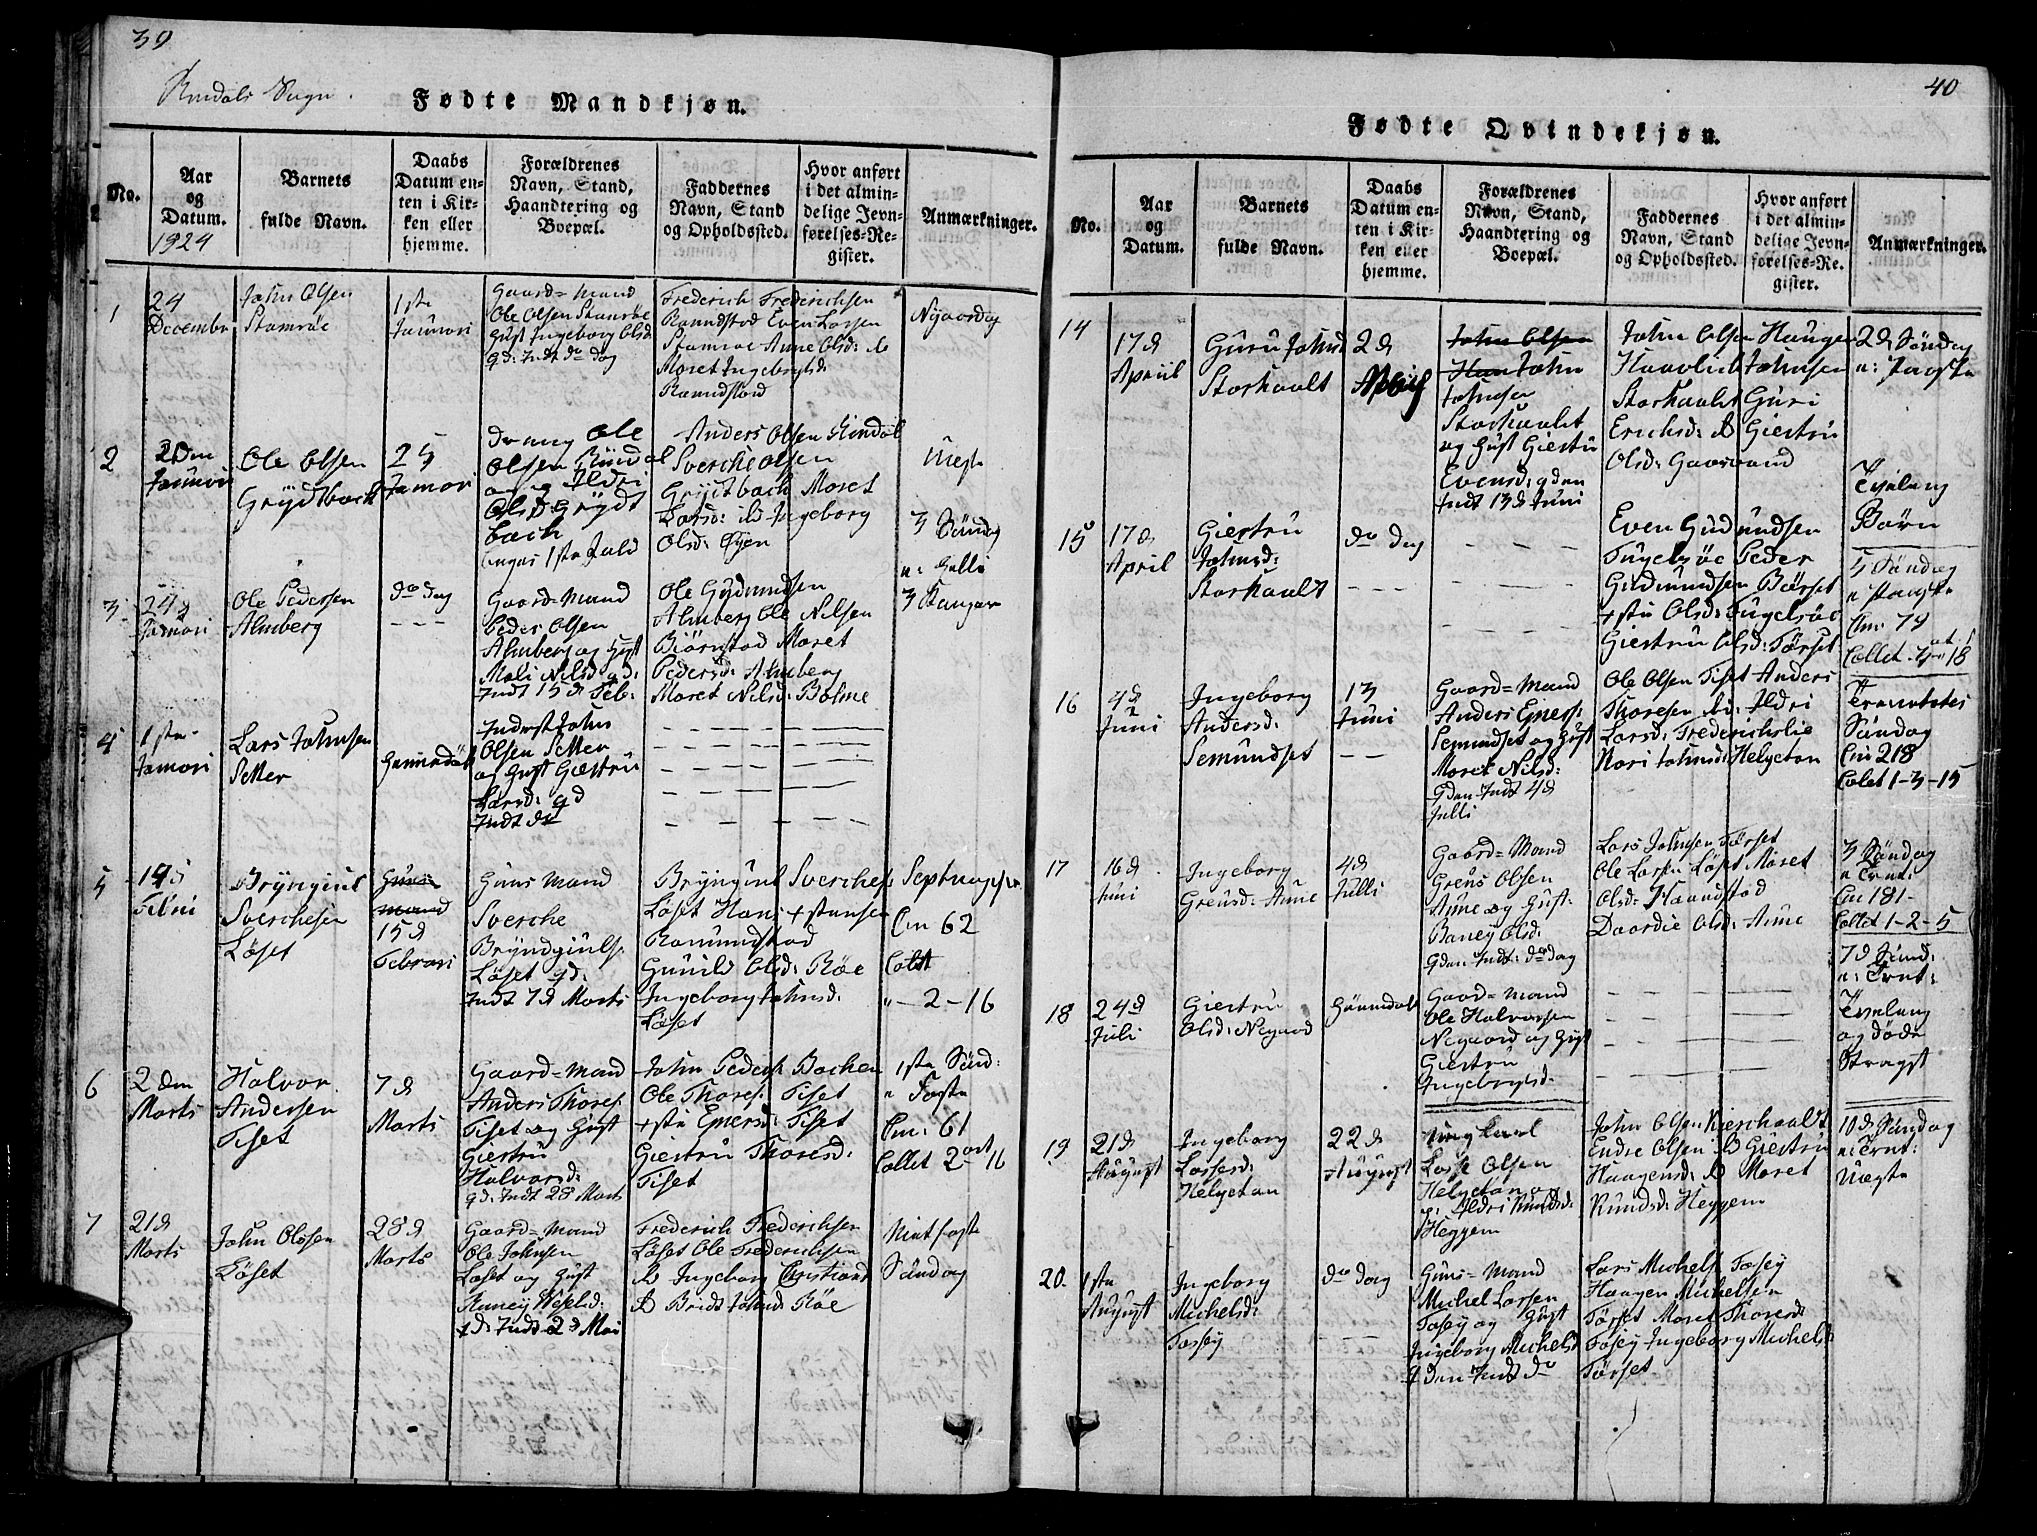 39
Rindals Sogn.
Fødte Mandkjøn.
No.
Aar
og
Datum.
1924
Barnets
fulde Navn.
Daabs
Datum en-
ten i Kir-
ken eller
hjemme.
Forældrenes
Navn, Stand,
Haandtering og
Boepæl.
Faddernes
Navn, Stand
og Opholdssted.
Hvor anført
i det almin-
delige Jevn-
førelses-Re-
gister.
Anmærkninger.
1
24
Decembr
John Olsen
Stomrøe
1ste
Januari
Gaard=Mand
Ole Olsen Stomrøe
Gust Ingeborg Olsd:
gd: Indt do dag
Frederich Frederichsen
Romundstad Even Larsen
Stomroe Anne Olsd: do
Moret Ingebrigtsd:
Romundstad
Nyaarsdag
2
2den
Januari
Ole Olsen
Grÿdtbach
25
Januari
Drang Ole
Olsen Rindal
og Ildri
Olsd: Grÿdt
bach
begges 1ste Fald
Anders Olsen Rindal
Sverche Olsen
Grÿdtbach Moret
Larsd: ibd Ingeborg
Olsd: Øyen
Uægte
3 Søndag
n: Helli
3 Konger
3.
24d
Januari
Ole Pedersen
Almberg
do dag
Gaard=Mand
Peder Olsen
Almberg og Gust
Mali Nilsd: gd:
Indt 15 d Feb:
Ole Gudmundsen
Almberg Ole Nilsen
Biørnstad Moret
Pedersd: Almberg
Moret Nilsd: Bolme
4
1ste
Januari
Lars Johnsen
Setter
Hiemedøbt
Inderst John
Olsen Setter
og Gust Giertru
Larsd: gd
Indt do
5
14d
Febru
Brÿngiul
Sverchesen
Løset
Huus
mand
15d
Februari
Huus Mand
Sverche
Brÿndgiuls:
Løset gd:
Indt 7d Marts
Brÿngiul Sverches:
Løset Hans +stensen
Romundstad
Gunild Olsd: Røe
Ingeborg Johnsd:
Løset
Septuages:
Cm 62
Colt
"-2-16
6
2den
Marts
Halvor
Andersen
Tiset
7d
Marts
Gaard=Mand
Anders Thores:
Tiset og Gust
Giertru
Halvorsd:
gd: Indt 28 Marts
John Peders: Bachen
Ole Thores: Tiset
+sti Eners: Tiset
Giertru Thoresd:
Tiset
1ste Sønd:
n Faste
Cm: 61
Collet 2 ort 16
7
21d
Marts
John Olesen
Løset
28d
Marts
Gaard=Mand
Ole Johnsen
Løset og Gust
Raney Wesels:
gd: Indt 2d Mai
Frederich Frederichsen
Løset Ole Frederichsen
do Ingeborg Christiansd
do Bridt Johnsd: Røe
Midtfaste
Søndag
40
Fødte Qvindekjøn.
No.
Aar
og
Datum.
Barnets
fulde Navn.
Daabs
Datum en-
ten i Kir-
ken eller
hjemme.
Forældrenes
Navn, Stand,
Haandtering og
Boepæl.
Faddernes
Navn, Stand
og Opholdssted.
Hvor anført
i det almin-
delige Jevn-
førelses-Re-
gister.
Anmærkninger.
14
17d
April
Guru Johnsd
Storhaalt
2d
John Olsen
John
Johnsen
Storhaalt
og Gust Giertru
Evensd: gden
Indt 13d Juni
John Olsen Haugen
Haavlid Johnsen
Storhaalt Guri
Erichsd: do Giertru
Olsd: Gaasvand
2d Søndag
n: Paaske
Tvilling
Børn
15
17d
April
Giertru
Johnsd:
Storhaalt
do dag
Even Gudmundsen
Fugelsøe Peder
Gudmundsen Børset
+sti Olsd: Fugelsøe
Giertru Olsd: Tørset
5 Søndag
n Paaske
Cm: 79
Collet
16
4d
Juni
Ingeborg
Andersd:
Semundset
13
Juni
Gaard=Mand
Anders Eners:
Semundset og Gust
Moret Nilsd:
gden Indt 4d
Julli
Ole Olsen Tiset Anders
Thoresen do: Ildri
Larsd: Frederichslie
Mari Johnsd: Helgetun
Trinitatis
Søndag
Cm 218
Colet 1-3-15
17
16d
Juni
Ingeborg
Greusd: Aune
4d
Julli
Gaard=Mand
Greus Olsen
Aune og Gust:
Raney Olsd:
gden Indt: do dag
Lars Johnsen Tørset
Ole Larsen Løset Moret
Olsd: Haandstad
Daardie Olsd: Aune
3 Søndag
n Trnt:
Cm 181-
Collet 1-2-5
18
24d
Juli
Giertru
Olsd: Negaard
Hiemdøbt
Gaard=Mand
Ole Halvorsen
Negaard og Gust
Giertru
Ingebrigtsd:
7d Sønd:
n: Trnt:
Tvilling
og døde
Stragst
19
21d
Auugust
Ingeborg
Larsesd:
Helgetun
22d
Auugust
Ungkarl
Lasse Olsen
Helgetun og
p: Ildri Knudsd:
Heggem
John Olsen Kierchaalt
Endre Olsen do Giertru
Haagensd: do Moret
Knudsd: Heggem
10d Søndag
n: Trnt:
Uægte
20.
1ste
Auugust
Ingeborg
Michelsd:
Fosey
do dag
Huus=Mand
Michel Larsen
Fosey og Gust
Ingeborg Michelsd
gden Indt do
Lars Michels: Fosey
Haagen Michelsen
Tørset Moret Thoresd:
Fosey Ingeborg Michelsd:
Tørset